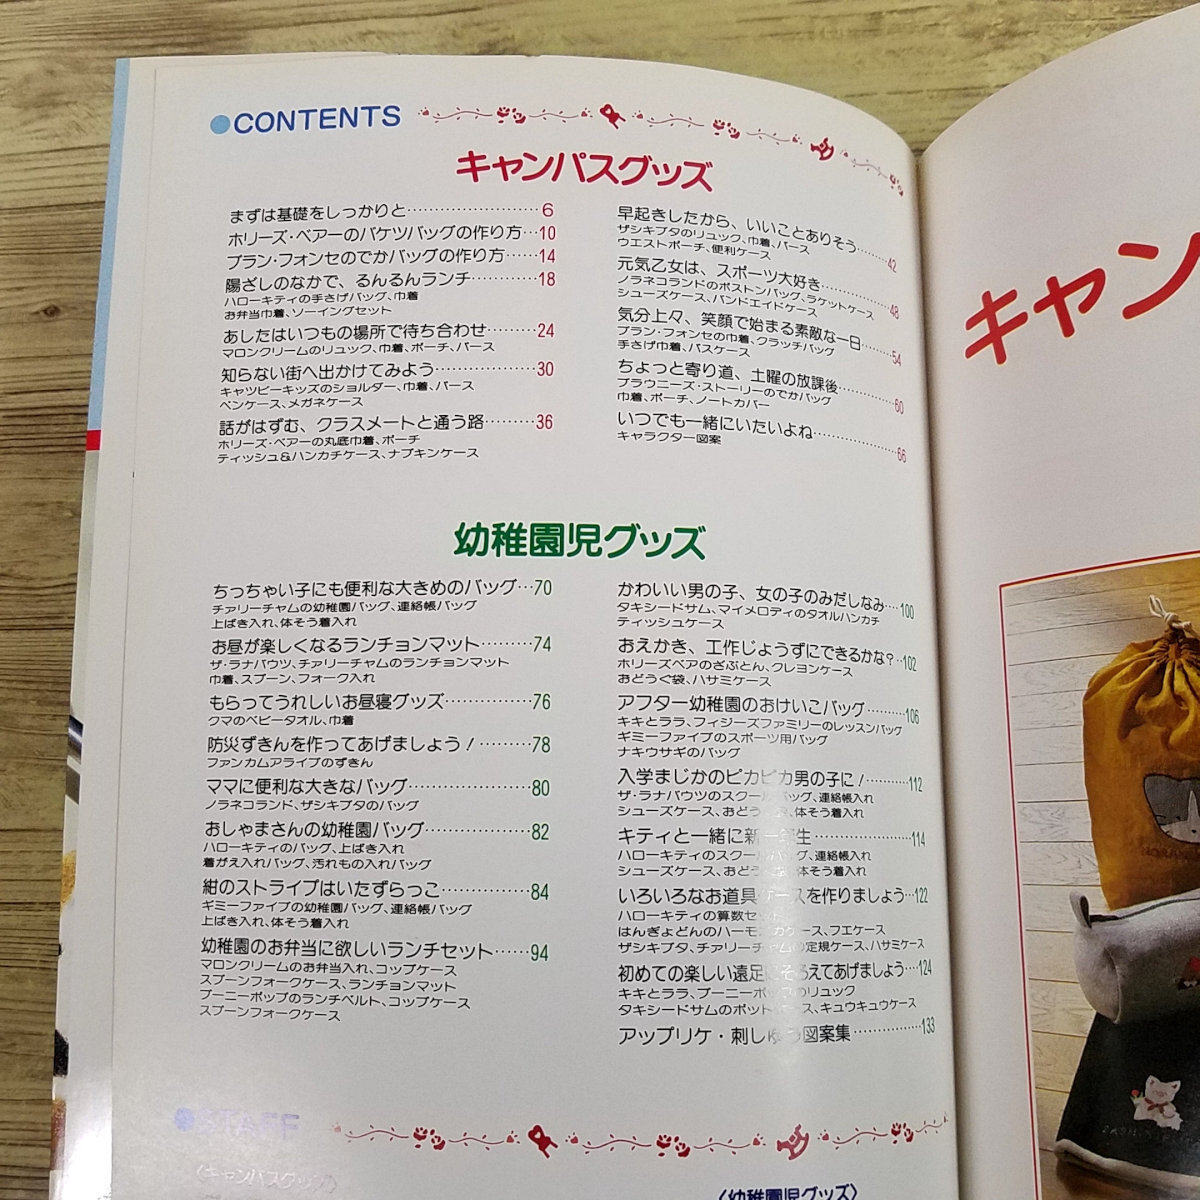 ●CONTENTS
キャンパスグッズ
まずは基礎をしっかりと……………………6
ホリーズ・ベアーのバケツバッグの作り方…10
ブラン・フォンセのでかバッグの作り方……14
陽ざしのなかで、るんるんランチ…………18
ハローキティの手さげバッグ、巾着
お弁当巾着、ソーイングセット
あしたはいつもの場所で待ち合わせ………24
マロンクリームのリュック、巾着、ポーチ、パース
知らない街へ出かけてみよう………………30
キャツピーキッズのショルダー、巾着、パース
ペンケース、メガネケース
話がはずむ、クラスメートと通う路………36
ホリーズ・ベアーの丸底巾着、ポーチ
ティッシュ&ハンカチケース、ナプキンケース
早起きしたから、いいことありそう………42
ザシキブタのリュック、巾着、パース
ウエストポーチ、便利ケース
元気乙女は、スポーツ大好き………………48
ノラネコランドのボストンバッグ、ラケットケース
シューズケース、バンドエイドケース
気分上々、笑顔で始まる素敵な一日………54
ブラン・フォンセの巾着、クラッチバッグ
手さげ巾着、パスケース
ちょっと寄り道、土曜の放課後……………60
ブラウニーズ・ストーリーのでかバッグ
巾着、ポーチ、ノートカバー
いつでも一緒にいたいよね…………………66
キャラクター図案
幼稚園児グッズ
ちっちゃい子にも便利な大きめのバッグ…70
チァリーチャムの幼稚園バッグ、連絡帳バッグ
上ばき入れ、体そう着入れ
お昼が楽しくなるランチョンマット………74
ザ・ラナバウツ、チァリーチャムのランチョンマット
巾着、スプーン、フォーク入れ
もらってうれしいお昼寝グッズ……………76
クマのベビータオル、巾着
防災ずきんを作ってあげましょう!………78
ファンカムアライブのずきん
ママに便利な大きなバッグ…………………80
ノラネコランド、ザシキブタのバッグ
おしゃまさんの幼稚園バッグ………………82
ハローキティのバッグ、上ばき入れ
着がえ入れバッグ、汚れもの入れバッグ
紺のストライプはいたずらっこ……………84
ギミーファイブの幼稚園バッグ、連絡帳バッグ
上ばき入れ、体そう着入れ
幼稚園のお弁当に欲しいランチセット……94
マロンクリームのお弁当入れ、コップケース
スプーンフォークケース、ランチョンマット
プーニーポップのランチベルト、コップケース
スプーンフォークケース
かわいい男の子、女の子のみだしなみ…100
タキシードサム、マイメロディのタオルハンカチ
ティッシュケース
おえかき、工作じょうずにできるかな?…102
ホリーズベアのざぶとん、クレヨンケース
おどうぐ袋、ハサミケース
アフター幼稚園のおけいこバッグ………106
キキとララ、フィジーズファミリーのレッスンバッグ
ギミーファイブのスポーツ用バッグ
ナキウサギのバッグ
入学まじかのピカピカ男の子に!…………112
ザ・ラナバウツのスクールバッグ、連絡帳入れ
シューズケース、おどう 体そう着入れ
キティと一緒に新一年生……………………114
ハローキティのスクールバッグ、連絡帳入れ
シューズケース、おどう 体そう着入れ
いろいろなお道具ケースを作りましょう…122
ハローキティの算数セット
はんぎょどんのハーモニカケース、フエケース
ザシキブタ、チァリーチャムの定規ケース、ハサミケース
初めての楽しい遠足にそろえてあげましょう…124
キキとララ、プーニーポップのリュック
タキシードサムのポット ース、キュウキュウケース
アップリケ・刺しゅう図案集………………133
●STAFF
〈キャンパスグッズ〉
〈幼稚園児グッズ〉
キャン